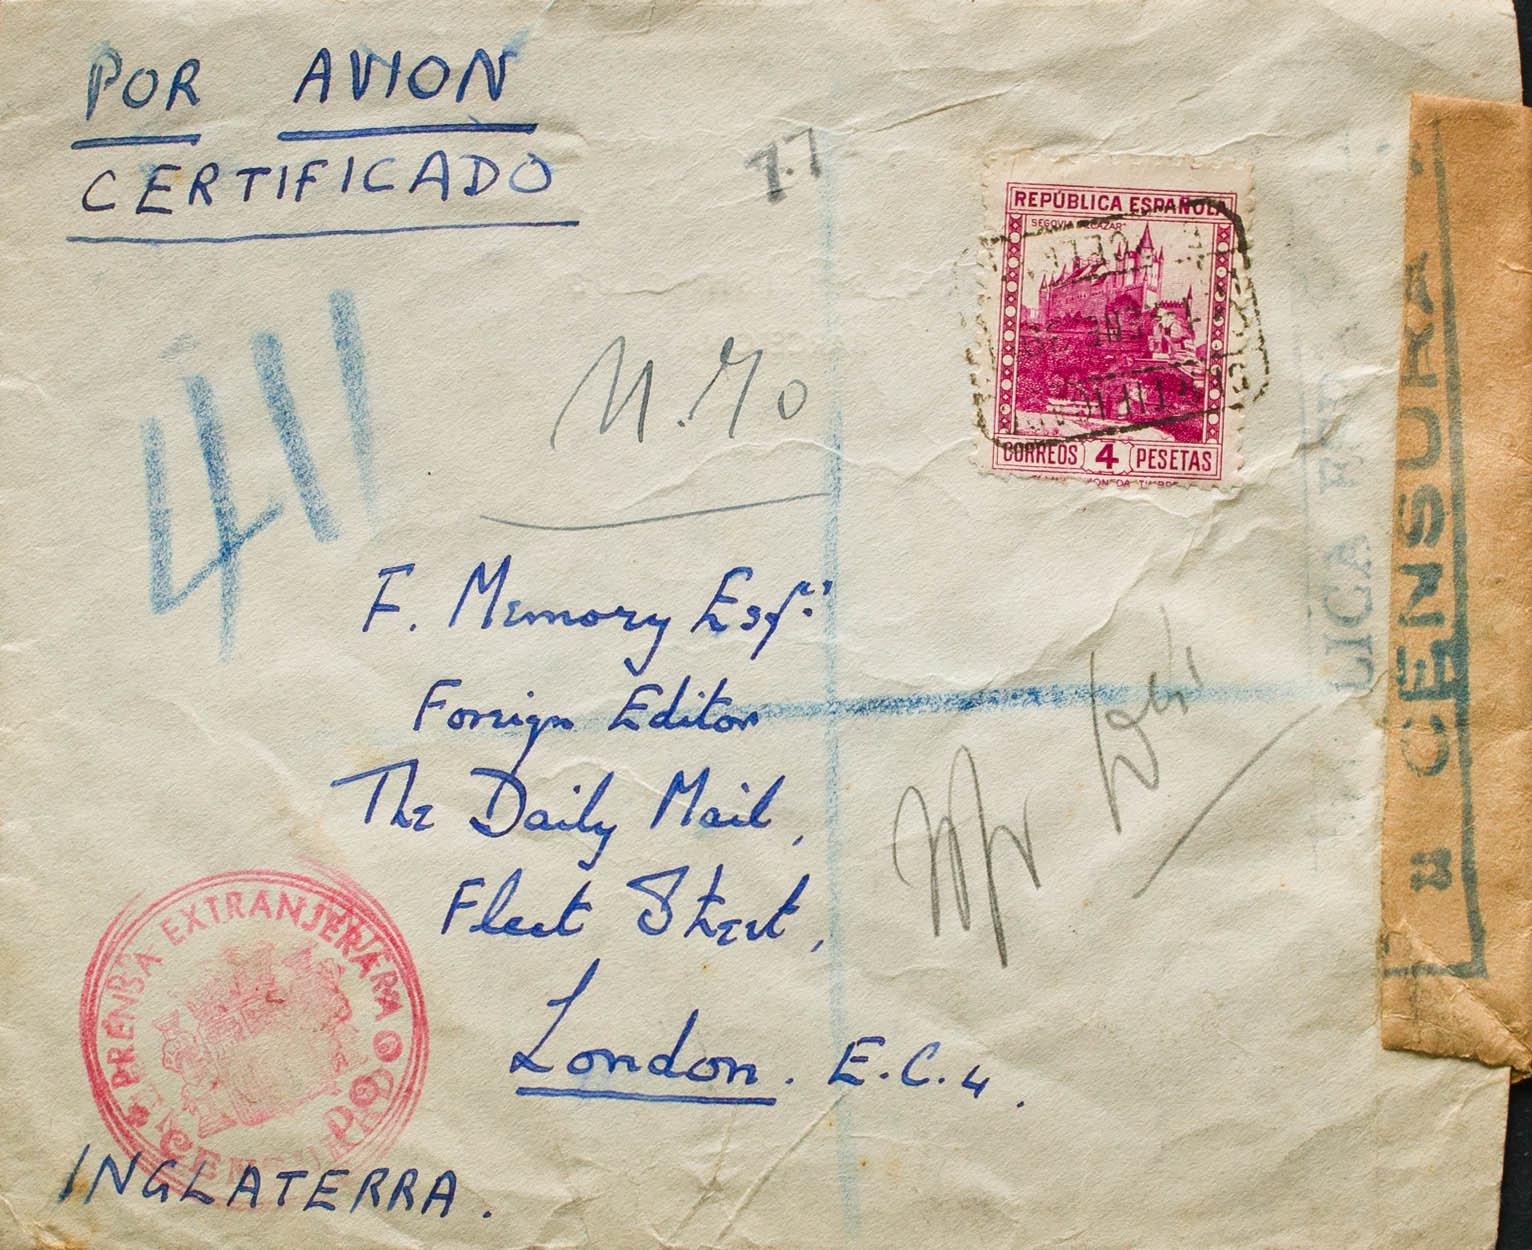 POR AVION
CERTIFICADO
7.7
REPÚBLICA ESPAÑOLA
SEGOVIA ALCAZAR
CORREOS 4 PESETAS
411
F. Memory Esqr.
Foreign Editor
The Daily Mail,
Fleet Street,
London. E.C.4.
INGLATERRA.
PRENSA EXTRANJERA
CENSURA
LIGA